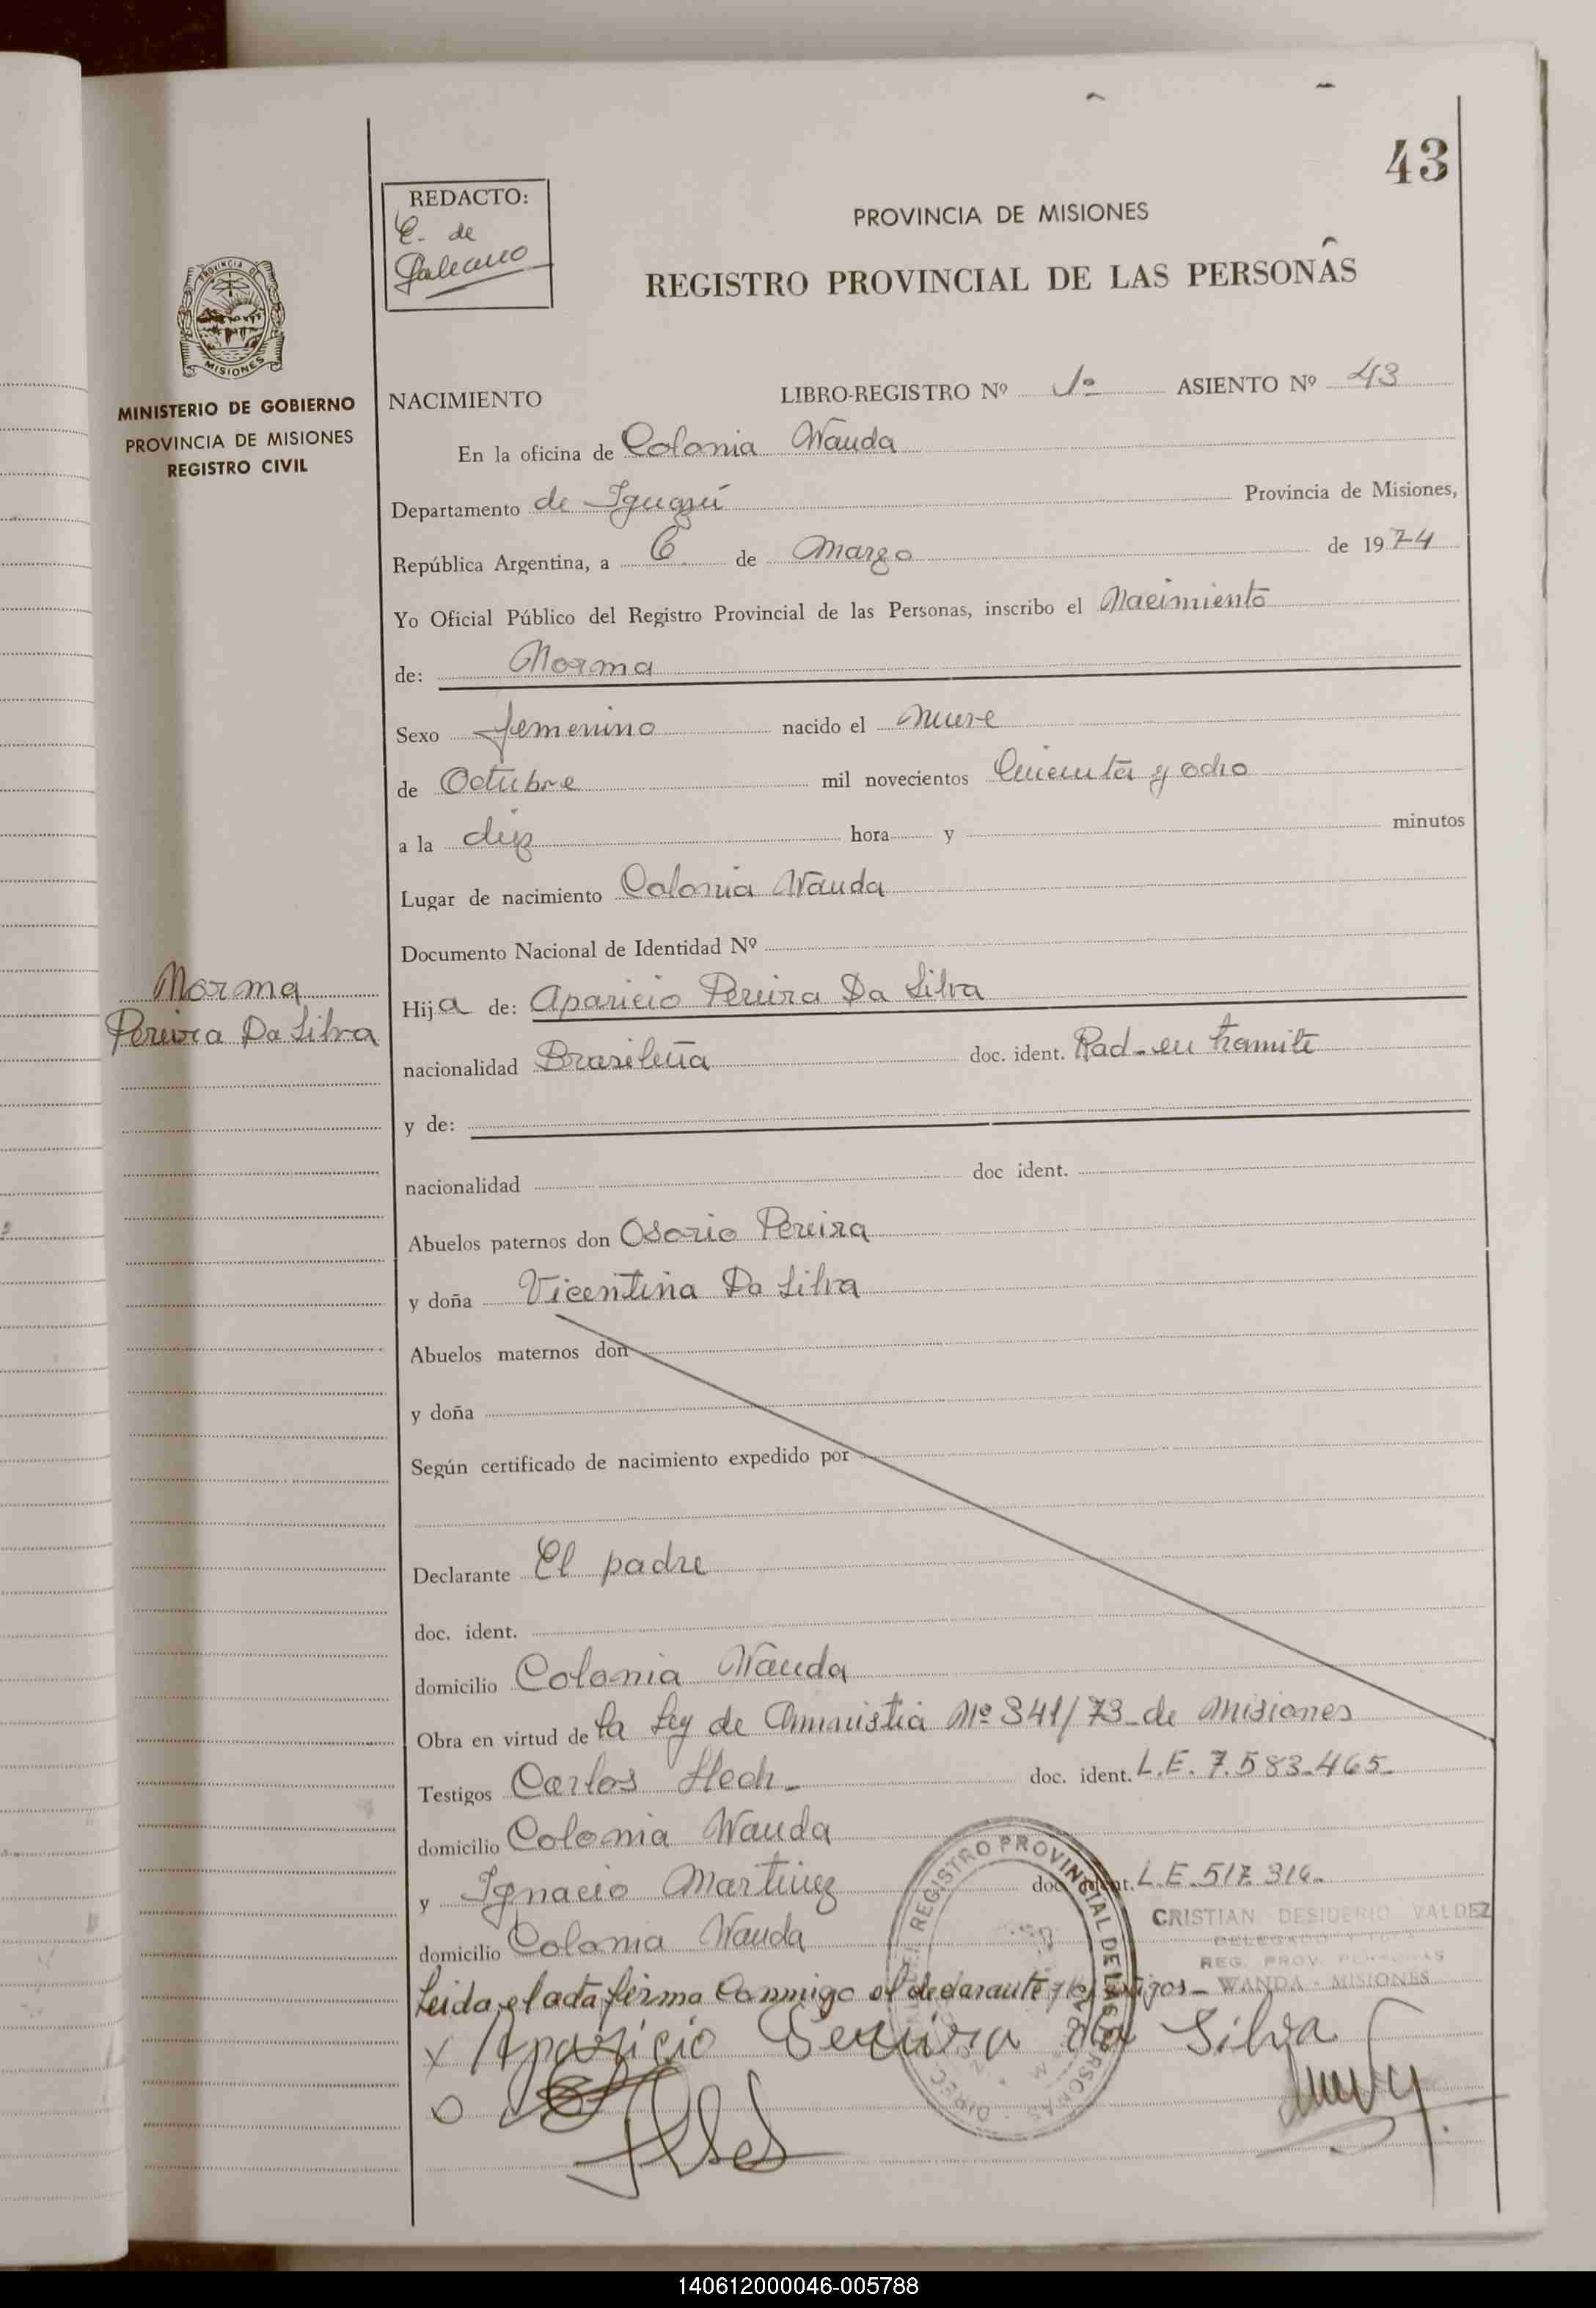 43
REDACTO:
E. de
Galeano
PROVINCIA DE MISIONES
REGISTRO PROVINCIAL DE LAS PERSONAS
PROVINCIA DE
MISIONES
MINISTERIO DE GOBIERNO
PROVINCIA DE MISIONES
REGISTRO CIVIL
NACIMIENTO LIBRO-REGISTRO Nº 1º ASIENTO Nº 43
En la oficina de Colonia Wanda
Departamento de Iguazú Provincia de Misiones,
República Argentina, a 6 de Marzo de 1974
Yo Oficial Público del Registro Provincial de las Personas, inscribo el Nacimiento
de: Norma
Sexo femenino nacido el nueve
de Octubre mil novecientos Cincuenta y ocho
a la diez hora y minutos
Lugar de nacimiento Colonia Wanda
Documento Nacional de Identidad Nº
Norma
Pereira Da Silva
Hija de: Aparicio Pereira Da Silva
nacionalidad Brasileña doc. ident. Rad-en tramite
y de:
nacionalidad doc ident.
Abuelos paternos don Osorio Pereira
y doña Vicentina Da Silva
Abuelos maternos don
y doña
Según certificado de nacimiento expedido por
Declarante El padre
doc. ident.
domicilio Colonia Wanda
Obra en virtud de la Ley de Amnistia Nº 341/73 de Misiones
Testigos Carlos Hech- doc. ident. L.E. 7.583.465-
domicilio Colonia Wanda
y Ignacio Martinez doc. ident. L.E. 517.316-
domicilio Colonia Wanda
CRISTIAN DESIDERIO VALDEZ
REG. PROV. PERSONAS
WANDA - MISIONES
REGISTRO PROVINCIAL DE LAS PERSONAS
Leida el acta firma conmigo el declarante y los testigos-
x Aparicio Pereira da Silva
140612000046-005788